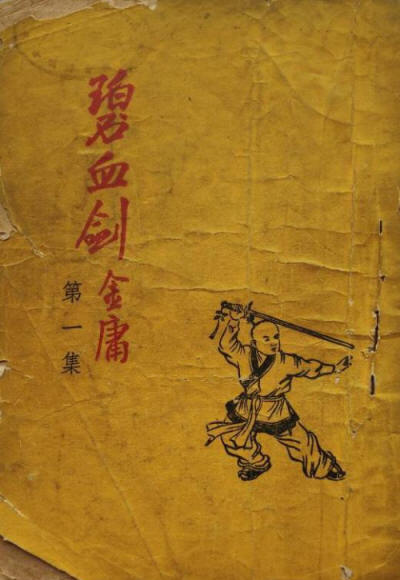 碧血剑
金庸
第一集